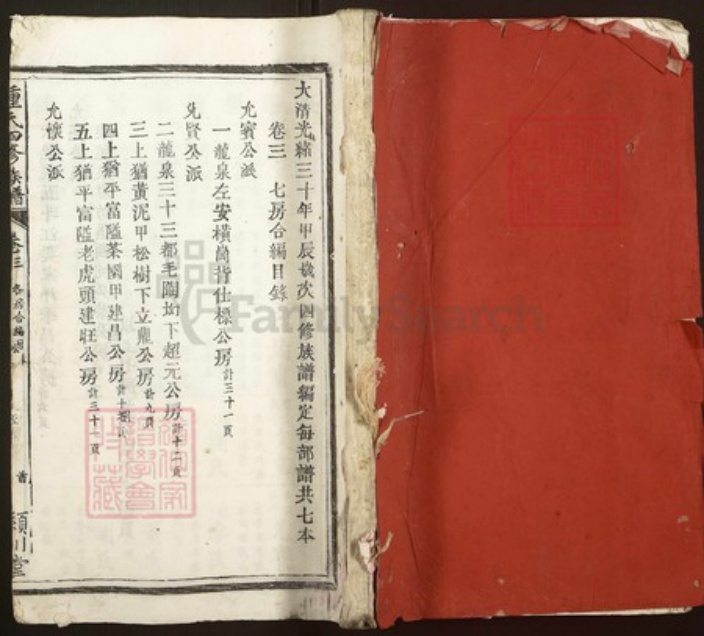 大清光緒三十年甲辰歲次四修族譜編定每部譜共七本
卷三 七房合編目錄
允賓公派
一龍泉左安橫崗背仕標公房計三十一頁
允賢公派
二龍泉三十三都毛陶坳下超元公房計十二頁
三上猶黃泥甲松樹下立鼎公房計九頁
四上猶平富隘茶園甲建昌公房計十
五上猶平富隘老虎頭建旺公房計三十一頁
允懷公派
鍾氏四修族譜 卷三 各房合編目 首 潁川堂
FamilySearch